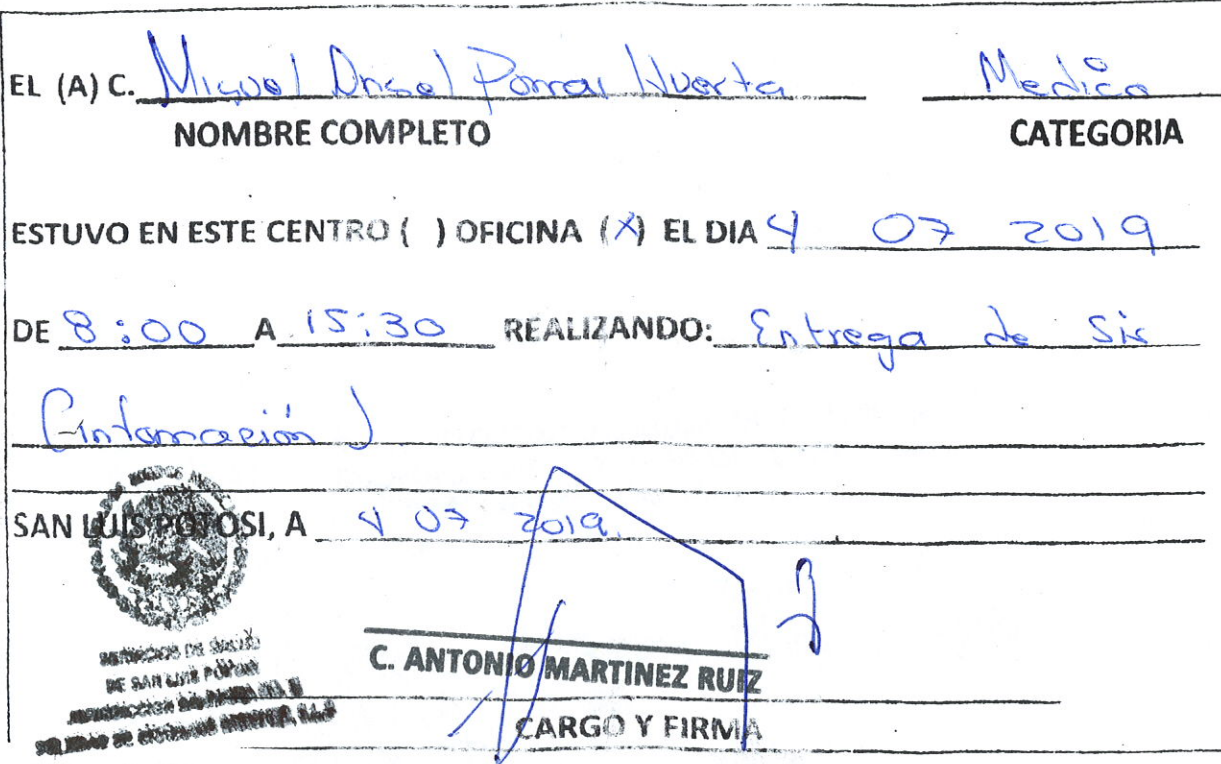 EL (A) C. Miguel Angel Porras Huerta Medico
NOMBRE COMPLETO CATEGORIA
ESTUVO EN ESTE CENTRO ( ) OFICINA (X) EL DIA 4 07 2019
DE 8:00 A 15:30 REALIZANDO: Entrega de Sis
(información)
SAN LUIS POTOSI, A 4 07 2019
DE SAN LUIS POTOSI
C. ANTONIO MARTINEZ RUIZ
CARGO Y FIRMA